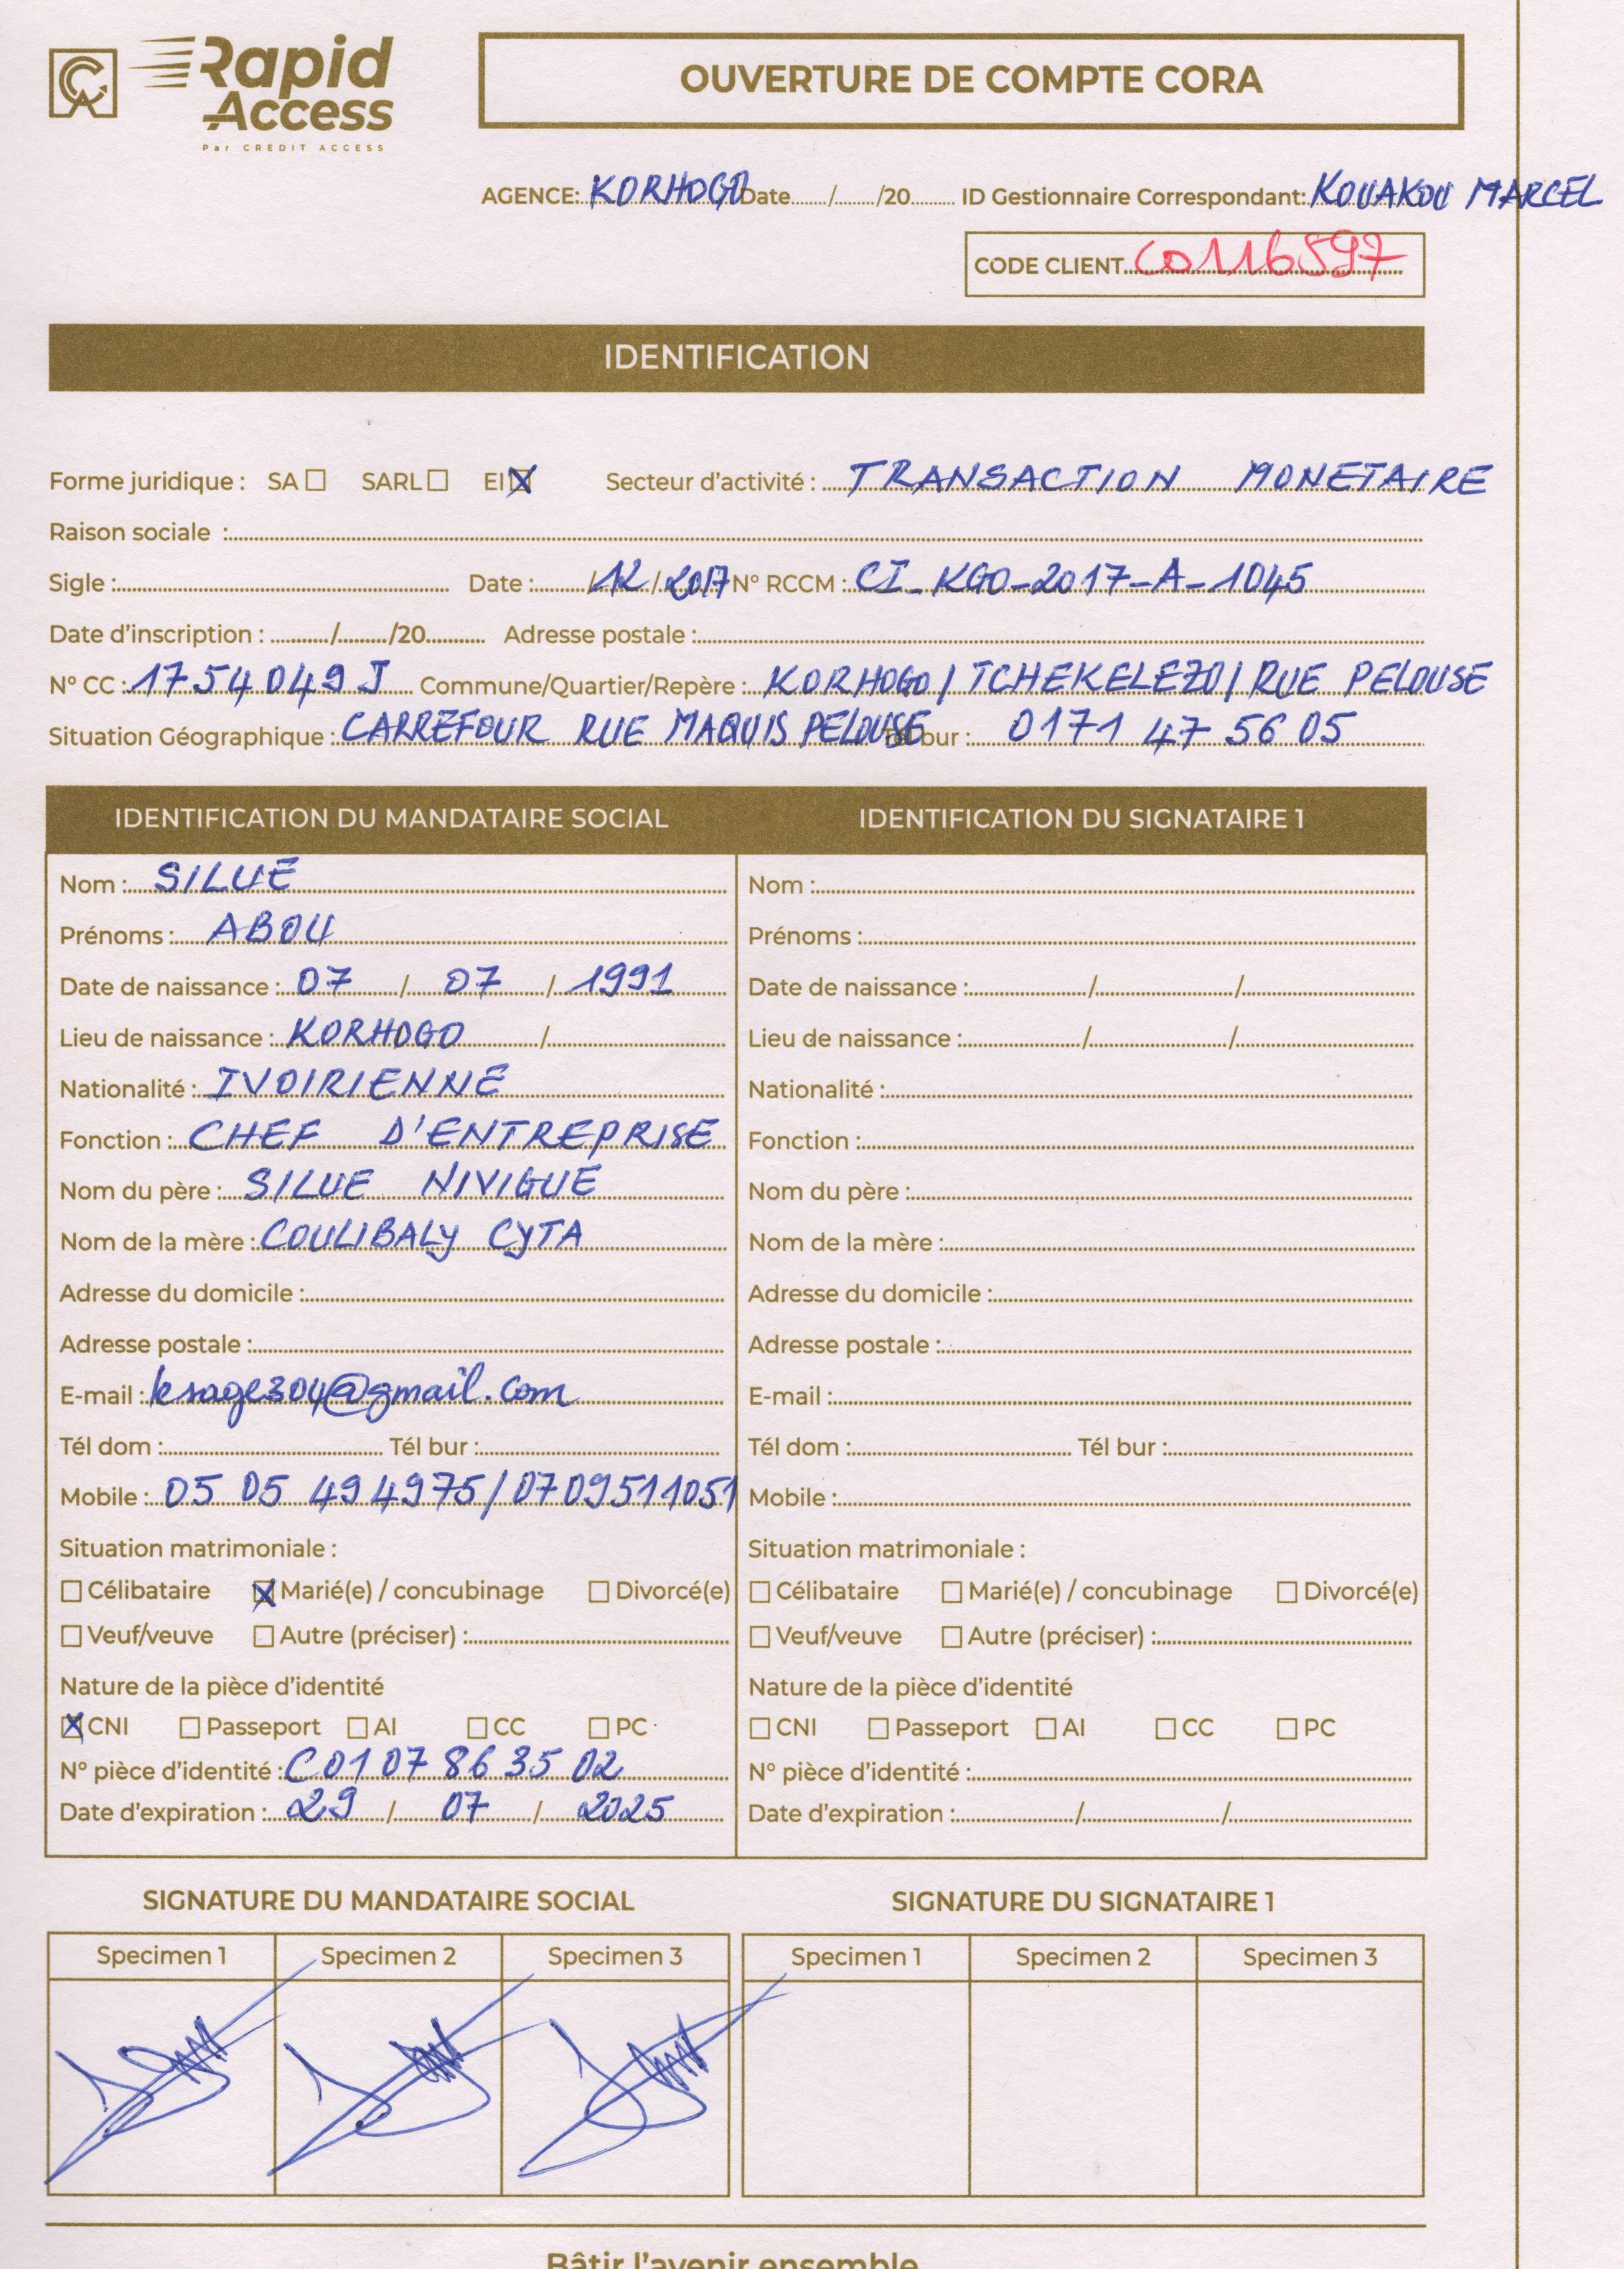 CA Rapid Access
Par CREDIT ACCESS
OUVERTURE DE COMPTE CORA
AGENCE: KORHOGO Date....../......./20........ ID Gestionnaire Correspondant: KOUAKOU MARCEL
CODE CLIENT C0116597
IDENTIFICATION
Forme juridique : SA ☐ SARL ☐ EI ☒ Secteur d'activité : TRANSACTION MONETAIRE
Raison sociale :
Sigle : Date : ......../12/2017 N° RCCM : CI-KGO-2017-A-1045
Date d'inscription : ........../......../20.......... Adresse postale :
N° CC : 1754049 J Commune/Quartier/Repère : KORHOGO / TCHEKELEZO / RUE PELOUSE
Situation Géographique : CARREFOUR RUE MAQUIS PELOUSE Tél bur : 0171 47 56 05
IDENTIFICATION DU MANDATAIRE SOCIAL
Nom : SILUE
Prénoms : ABOU
Date de naissance : 07 / 07 / 1991
Lieu de naissance : KORHOGO /
Nationalité : IVOIRIENNE
Fonction : CHEF D'ENTREPRISE
Nom du père : SILUE NIVIGUE
Nom de la mère : COULIBALY CYTA
Adresse du domicile :
Adresse postale :
E-mail : lesage304@gmail.com
Tél dom : Tél bur :
Mobile : 05 05 494975/0709511051
Situation matrimoniale :
☐ Célibataire ☒ Marié(e) / concubinage ☐ Divorcé(e)
☐ Veuf/veuve ☐ Autre (préciser) :
Nature de la pièce d'identité
☒ CNI ☐ Passeport ☐ AI ☐ CC ☐ PC
N° pièce d'identité : C01 07 86 35 02
Date d'expiration : 29 / 07 / 2025
IDENTIFICATION DU SIGNATAIRE 1
Nom :
Prénoms :
Date de naissance : / /
Lieu de naissance : / /
Nationalité :
Fonction :
Nom du père :
Nom de la mère :
Adresse du domicile :
Adresse postale :
E-mail :
Tél dom : Tél bur :
Mobile :
Situation matrimoniale :
☐ Célibataire ☐ Marié(e) / concubinage ☐ Divorcé(e)
☐ Veuf/veuve ☐ Autre (préciser) :
Nature de la pièce d'identité
☐ CNI ☐ Passeport ☐ AI ☐ CC ☐ PC
N° pièce d'identité :
Date d'expiration : / /
SIGNATURE DU MANDATAIRE SOCIAL
Specimen 1 Specimen 2 Specimen 3
SIGNATURE DU SIGNATAIRE 1
Specimen 1 Specimen 2 Specimen 3
Bâtir l'avenir ensemble